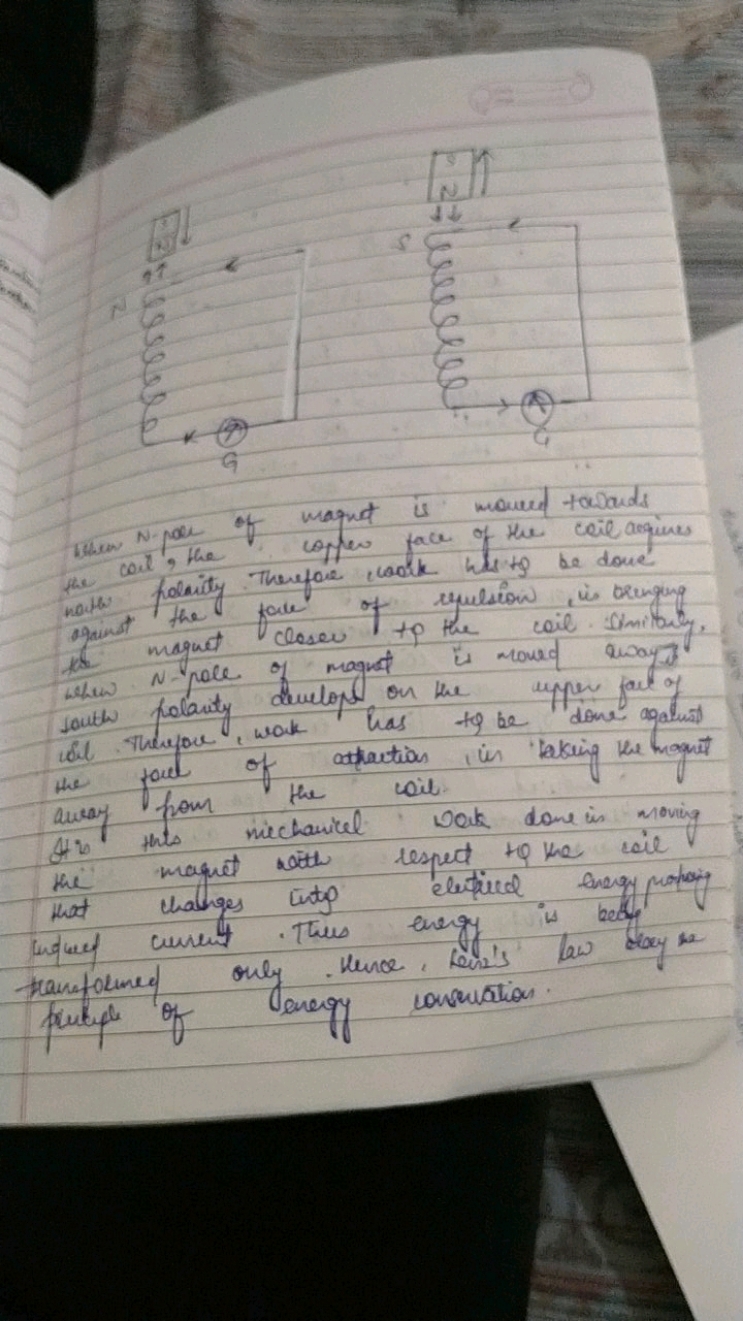 S
N
S
N
G
G
when N-pole of magnet is moved towards
the coil, the upper face of the coil acquires
north polarity. Therefore, work has to be done
against the force of repulsion, in bringing
the magnet closer to the coil. Similarly,
when N-pole of magnet is moved away,
south polarity develops on the upper face of
coil. Therefore, work has to be done against
the force of attraction, in taking the magnet
away from the coil.
It is this mechanical work done in moving
the magnet with respect to the coil
that changes into electrical energy producing
induced current. Thus energy is being
transformed only. Hence, Lenz's law obey the
principle of energy conservation.